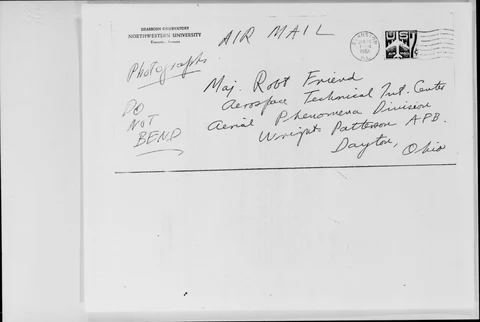 DEARBORN OBSERVATORY
NORTHWESTERN UNIVERSITY
Evanston, Illinois
AIR MAIL
Photographs
DO
NOT
BEND
Maj. Robt Friend
Aerospace Technical Int. Center
Aerial Phenomena Division
Wright Patterson AFB.
Dayton, Ohio
EVANSTON
ILL.